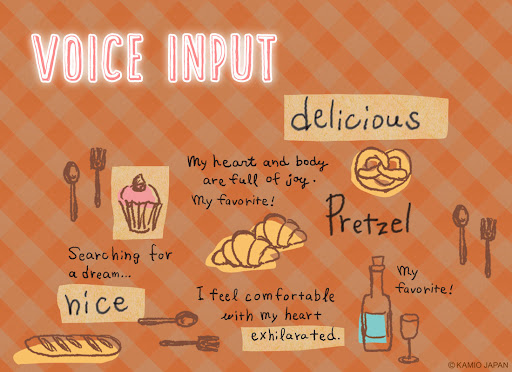 VOICE INPUT
delicious
My heart and body
are full of joy.
My favorite!
Pretzel
Searching for
a dream...
nice
I feel comfortable
with my heart
exhilarated.
My
favorite!
© KAMIO JAPAN